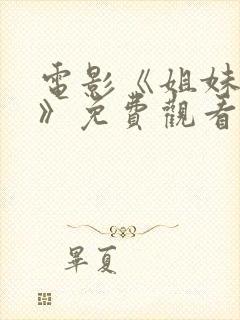 電影《姐妹
》免費觀看
畢夏